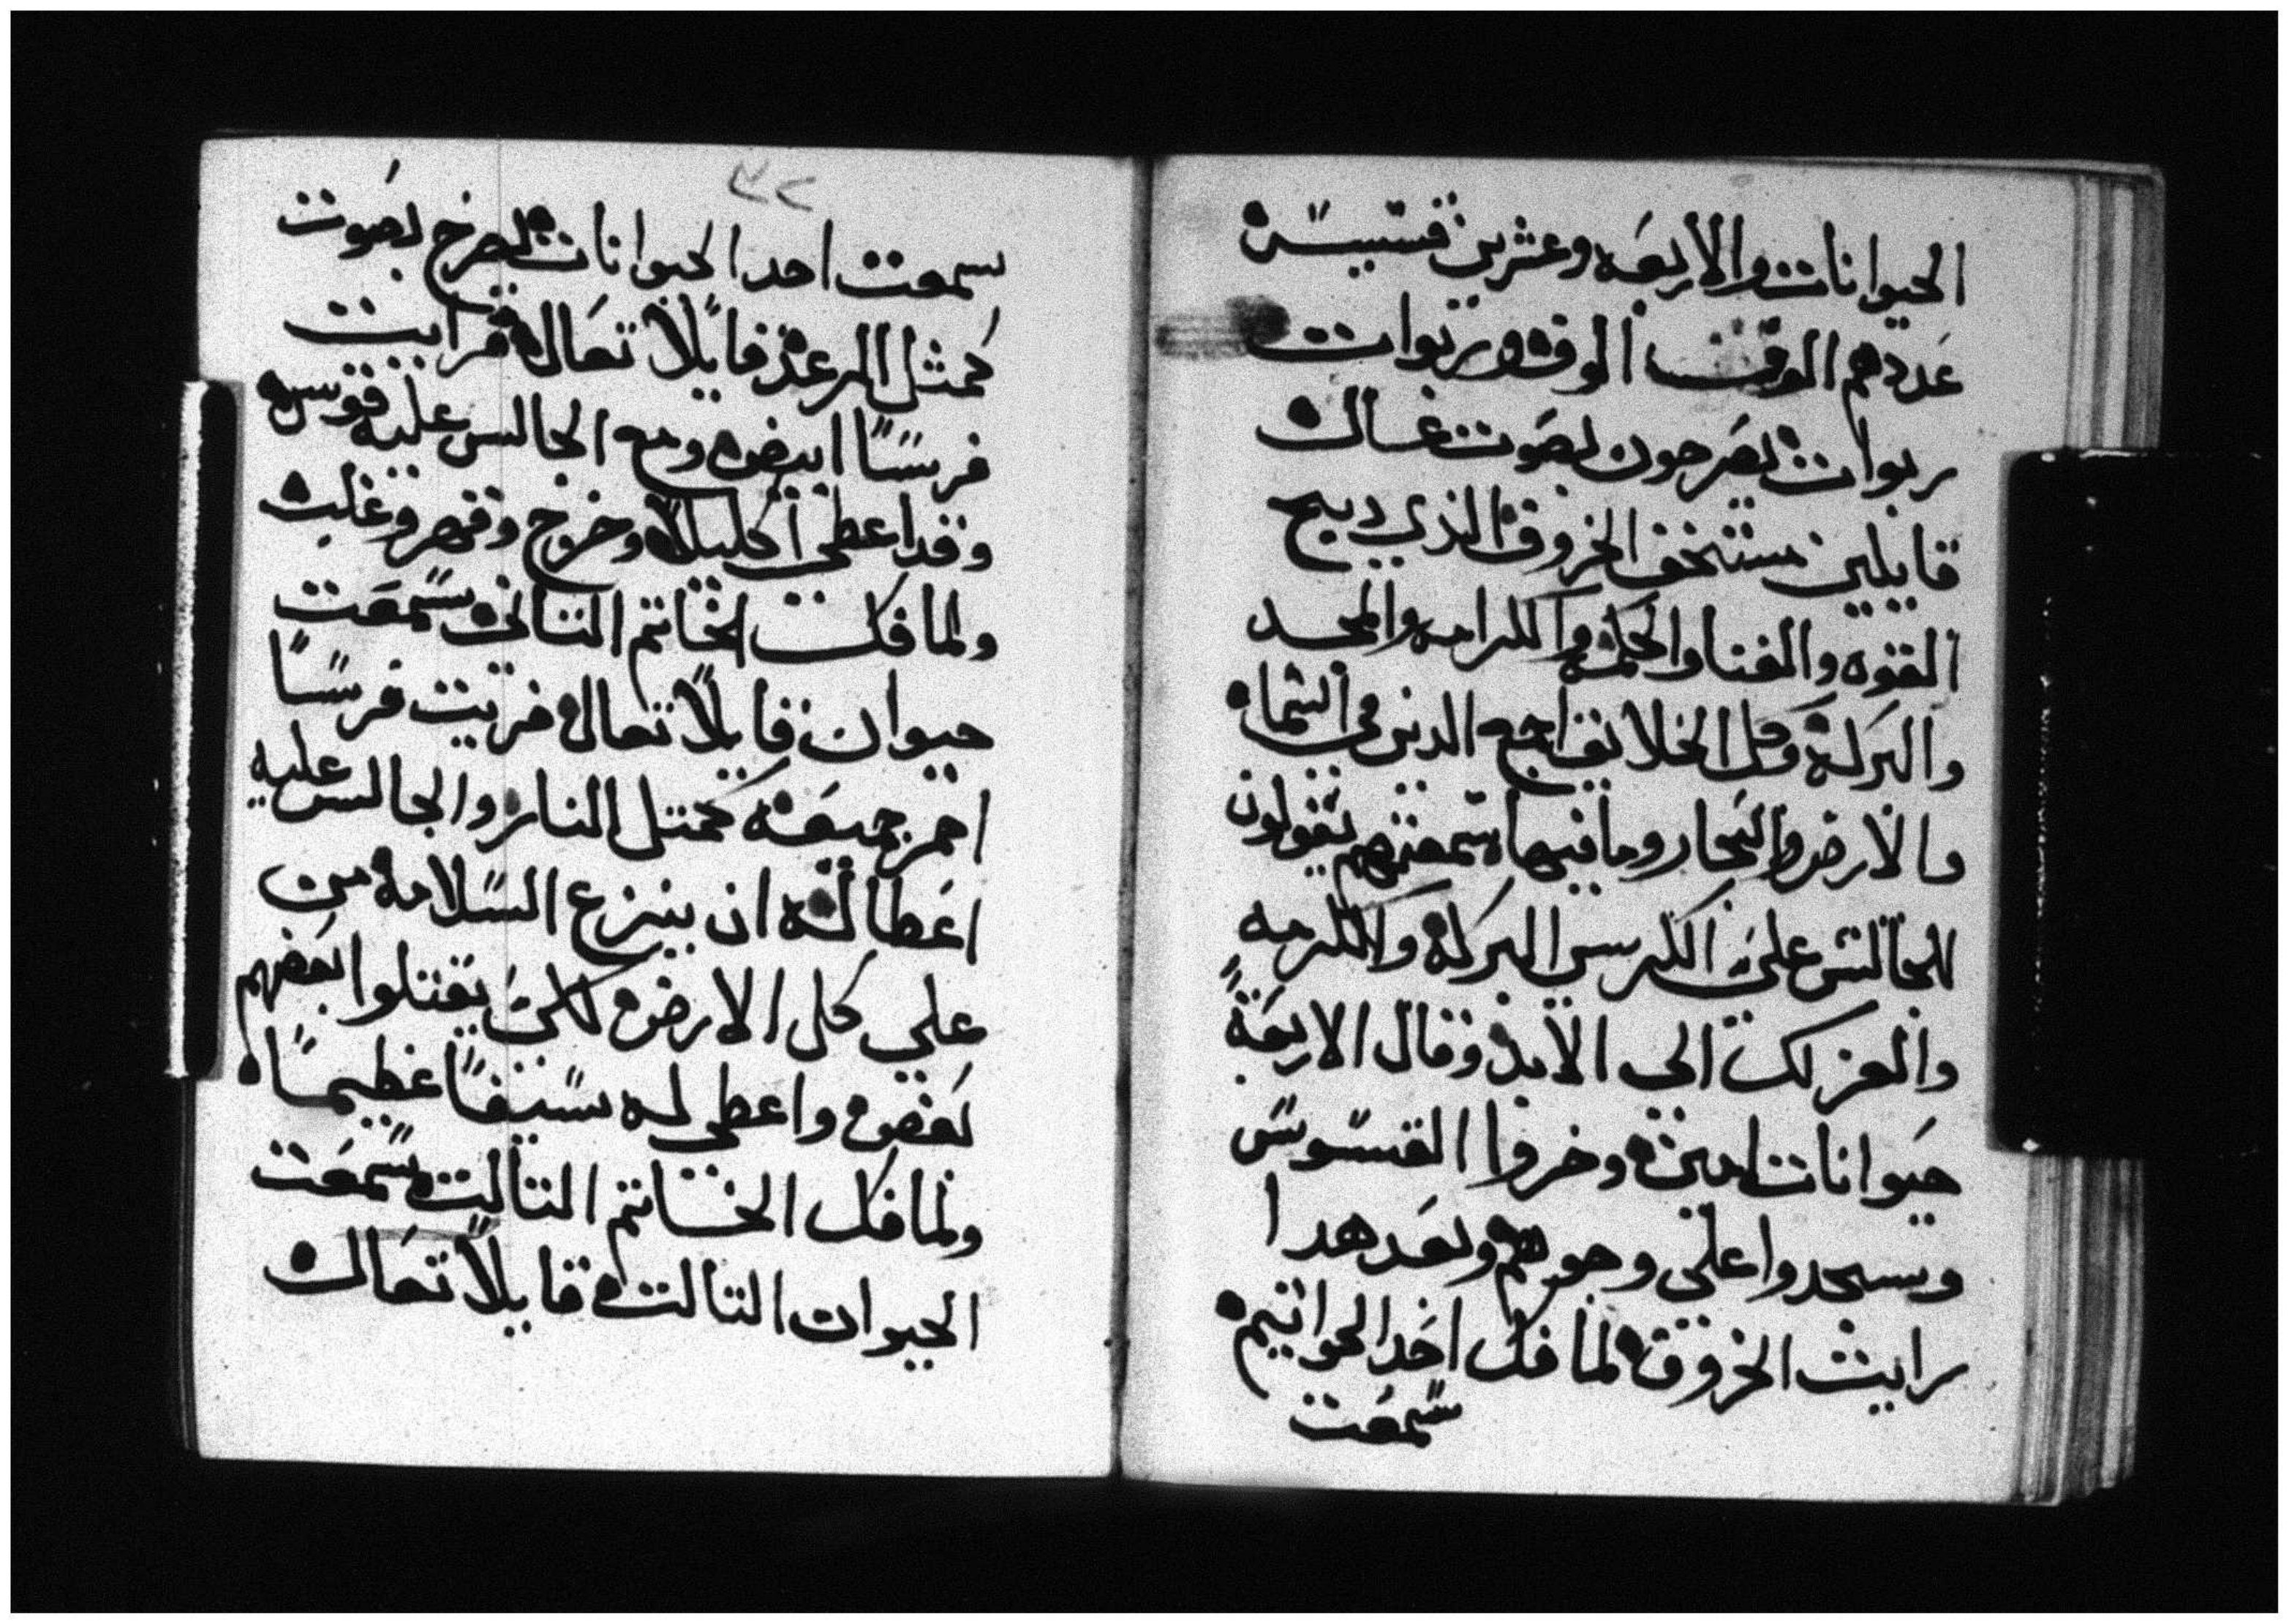 الحيوانات والاربعه وعشرين قسيسه
عددهم الوف الوف وربوات
ربوات يصرحون بصوت عسال
قايلين مستحق الخروف الذي دبح
القوه والغنا والحكمه والكرامه والمجد
والبركه وكل الخلايق اجمع الدين في السماه
والارض والبحار وما فيها سمعتهم يقولون
للجالس علي الكرسي البركه والكرمه
والعز لك الي الابد وقال الاربعة
حيوانات امين وخروا القسوس
وسجدوا علي وجوههم وبعد هدا
رايت الخروف لما فك احد الخواتيم
سمعت
٣٢
سمعت احد الحيوانات يصرخ بصوت
كمثل الرعد قايلاً تعال فرايت
فرسًا ابيض ومع الجالس عليه قوس
وقد اعطي اكليلاً وخرج وقهر وغلب
ولما فك الخاتم التاني سمعت
حيوان قايلاً تعال فريت فرسًا
احمر جميعه كمتل النار والجالس عليه
اعطا له ان ينزع السلامه من
علي كل الارض لكي يقتلوا بعضهم
بعض واعطي له سيفًا عظيمًا
ولما فك الخاتم التالت سمعت
الحيوان التالت قايلاً تعال